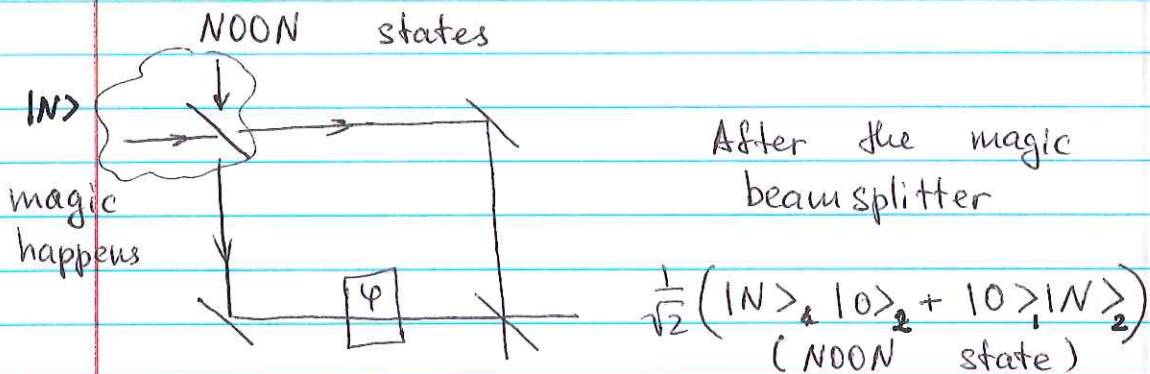 NOON states
|N>
magic
happens
After the magic
beamsplitter
φ
1/√2 (|N>₁ |0>₂ + |0>₁|N>₂)
(NOON state)